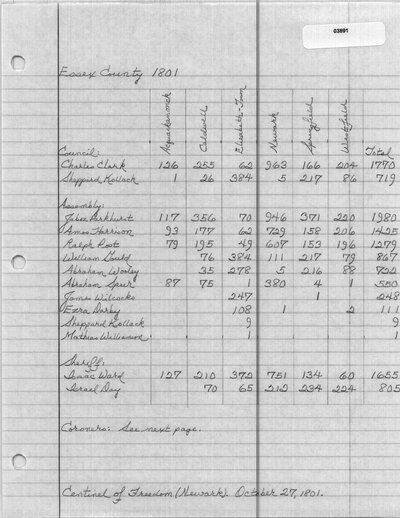 03891
Essex County 1801
Acquackanonck Caldwell Elizabeth-Town Newark Springfield Westfield Total
Council:
Charles Clark 126 255 62 963 166 204 1770
Sheppard Kollock 1 26 384 5 217 86 719
Assembly:
Jabez Parkhurst 117 356 70 946 371 220 1980
Amos Harrison 93 177 62 729 158 206 1425
Ralph Post 79 195 49 607 153 196 1279
William Gould 76 384 111 217 79 867
Abraham Wooley 35 278 5 216 88 722
Abraham Speer 87 75 1 380 4 1 550
James Wilcocks 247 1 248
Ezra Darby 108 1 2 111
Sheppard Kollock 9 9
Mathias Williamson 1 1
Sheriff:
Isaac Ward 127 210 372 751 134 60 1655
Israel Day 70 65 212 234 224 805
Coroners: See next page.
Centinel of Freedom (Newark). October 27, 1801.